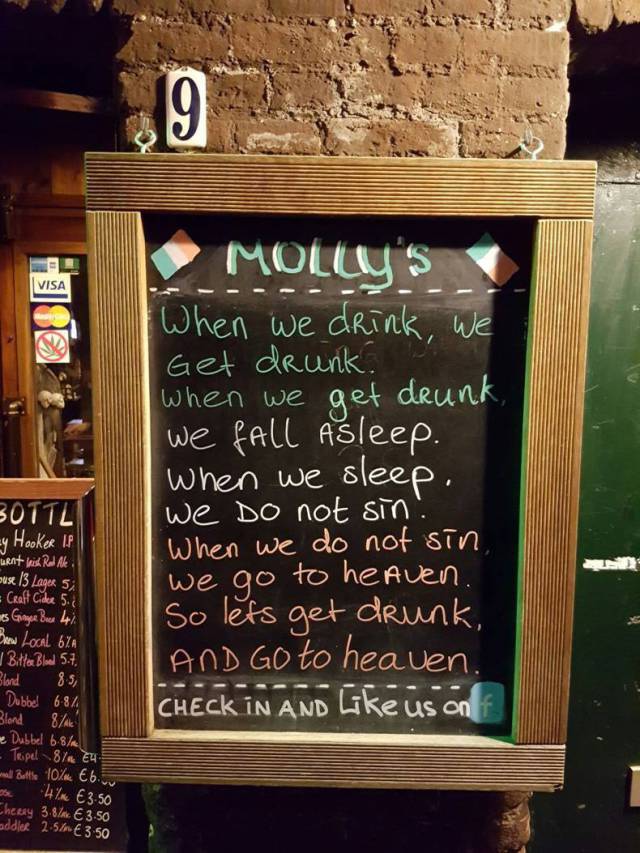 9
MOLLY'S
When we drink, we
Get drunk.
when we get drunk,
we fall Asleep.
When we sleep,
we Do not sin.
When we do not sin,
we go to heaven.
So lets get drunk,
AND GO to heaven.
CHECK in AND Like us on f
VISA
MasterCard
BOTTL
Hooker
Irish Red Ale
13 Lager 5.
Craft Cider 5.
Ginger Beer 4%
Brew Local 6%
Bitter Blond 5.7
Blond 8.5
Dubbel 6.8%
Blond 8%
Dubbel 6.8%
Tripel 8% €4
Small Bottle 10% €6.
4% €3.50
Cherry 3.8% €3.50
2.5% €3.50